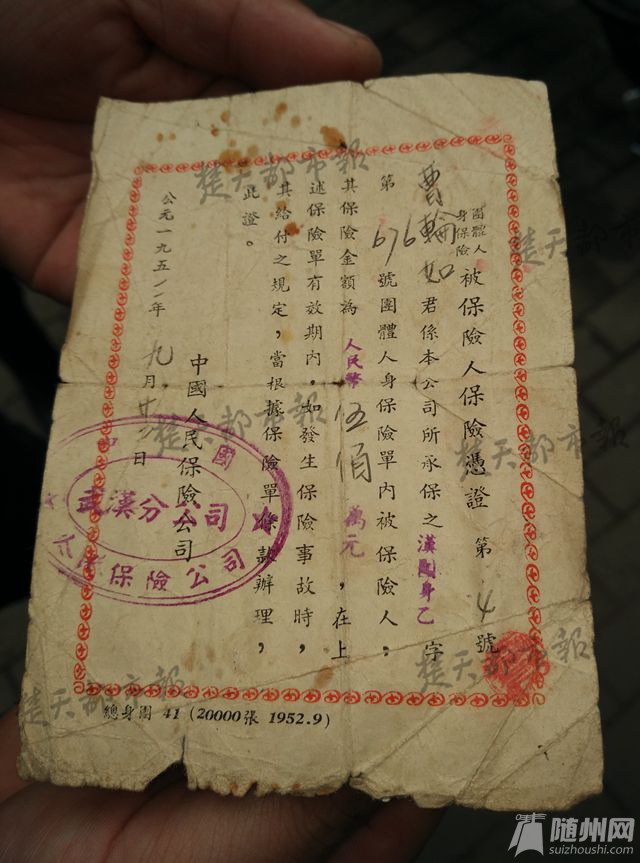 團體人
身保險
被保險人保險憑證 第4號
曹輪如君係本公司所承保之漢團身乙字
第676號團體人身保險單內被保險人,
其保險金額為人民幣伍佰萬元,在上
述保險單有效期內,如發生保險事故時,
其給付之規定,當根據保險單條款辦理,
此證。
中國人民保險公司
公元一九五二年九月廿日
武漢分公司
保險公司
總身團 41 (20000張 1952.9)
楚天都市報
楚天都市報
楚天都市報
楚天都市報
楚天都市報
楚天都市報
随州网
suizhoushi.com